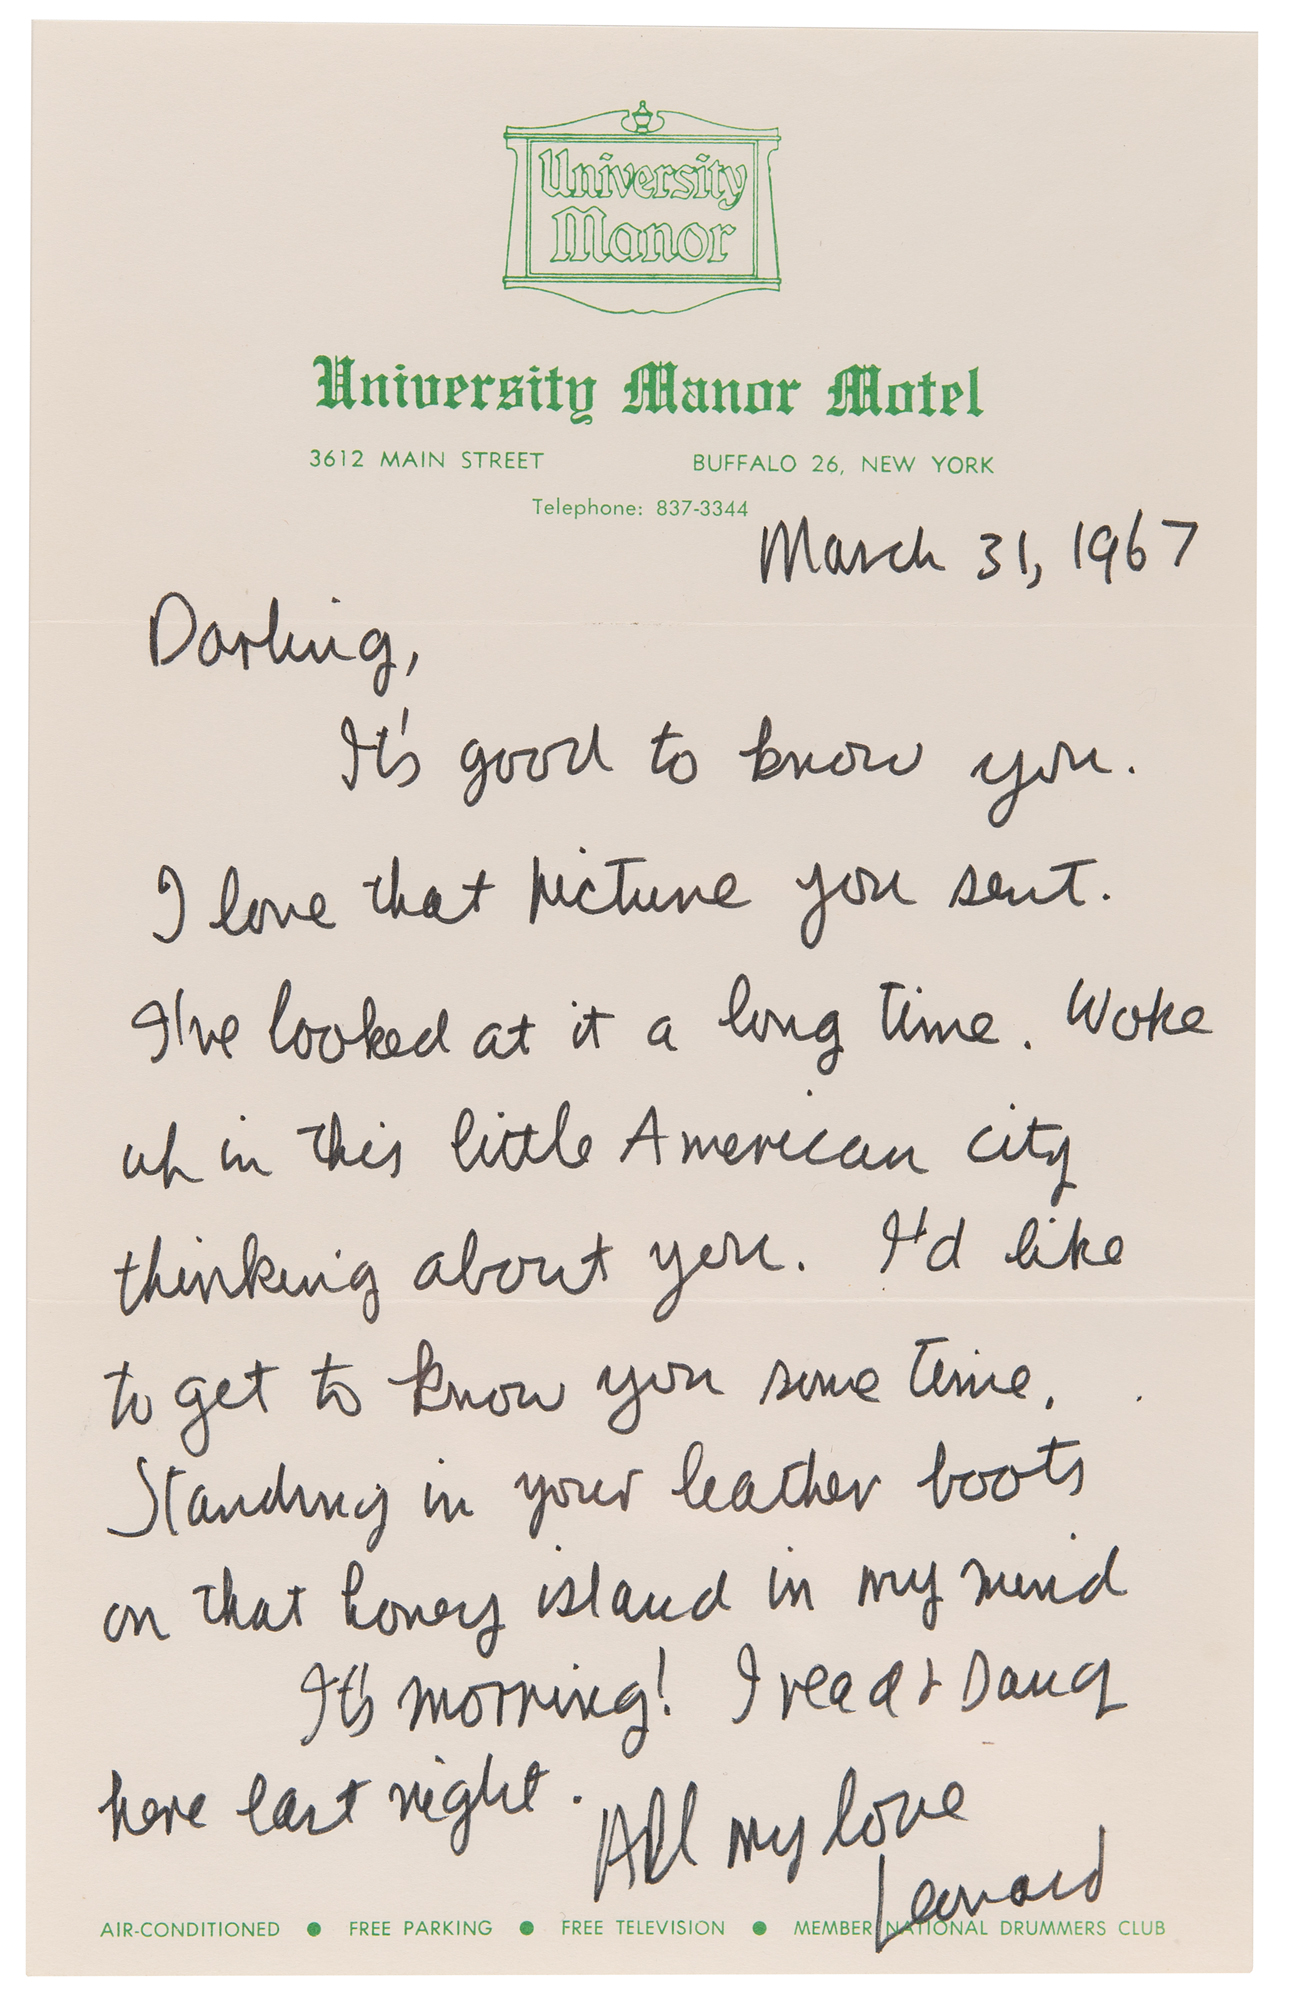 University
Manor
University Manor Motel
3612 MAIN STREET BUFFALO 26, NEW YORK
Telephone: 837-3344
March 31, 1967
Darling,
It's good to know you.
I love that picture you sent.
I've looked at it a long time. Woke
up in this little American city
thinking about you. I'd like
to get to know you some time.
Standing in your leather boots
on that honey island in my mind
It's morning! I read & sang
here last night.
All my love
Leonard
AIR-CONDITIONED ● FREE PARKING ● FREE TELEVISION ● MEMBER NATIONAL DRUMMERS CLUB